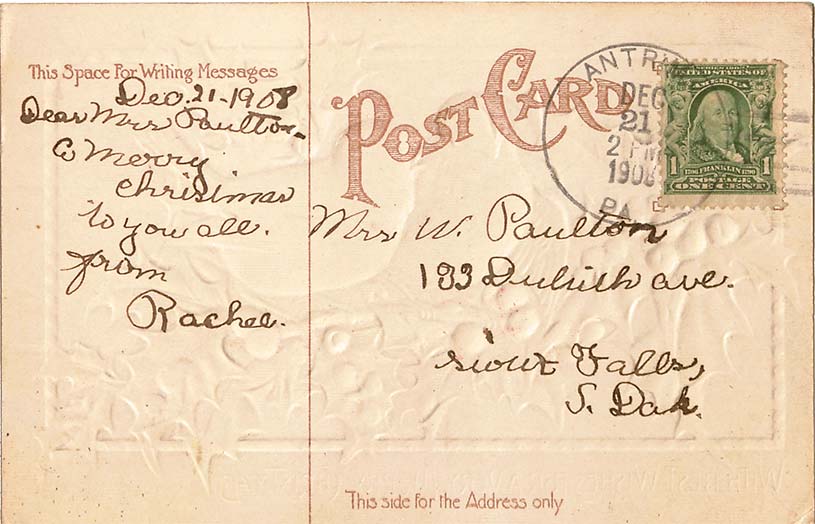 This Space For Writing Messages
Dec. 21-1908
Dear Mrs Paulton-
A Merry
Christmas
to you all.
from
Rachel.
POST CARD
ANTRIM
DEC
21
2 PM
1908
PA
SERIES 1902
UNITED STATES OF
AMERICA
1 1706 FRANKLIN 1790 1
POSTAGE
ONE CENT
Mrs W. Paulton
133 Duluth ave.
Sioux Falls,
S. Dak.
This side for the Address only